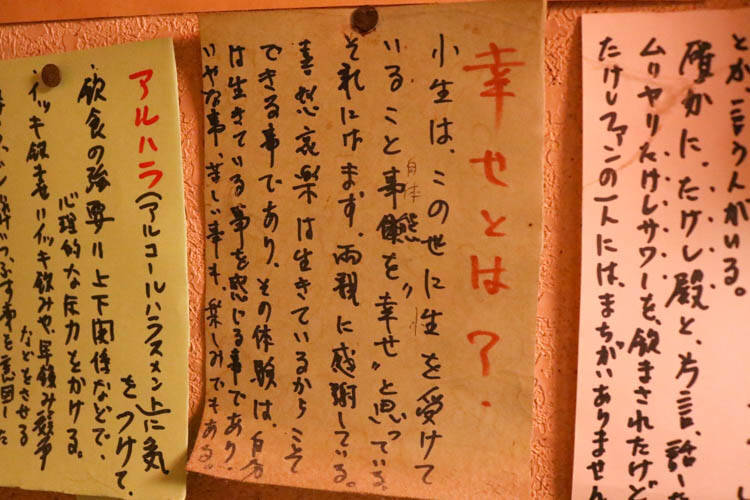 とか言うんがいる。
確かに、たけし殿と、片言、話し
ムリヤリたけしサワーを、飲まされたけど
たけしファンの一人には、まちがいありません
幸せとは?
小生は、この世に生を受けて
いること事態を〝幸せ〟と思っている。
自体
それにはまず、両親に感謝している。
喜怒哀楽は生きているからこそ
できる事であり、その体験は、自分
は生きている事を感じる事であり、
いやな事、苦しい事も、楽しみでもある。
アルハラ(アルコールハラスメント)に気
をつけて、
・飲食の強要=上下関係などで、
心理的な圧力をかける。
・イッキ飲ませ=イッキ飲みや、早飲み競争
などをさせる